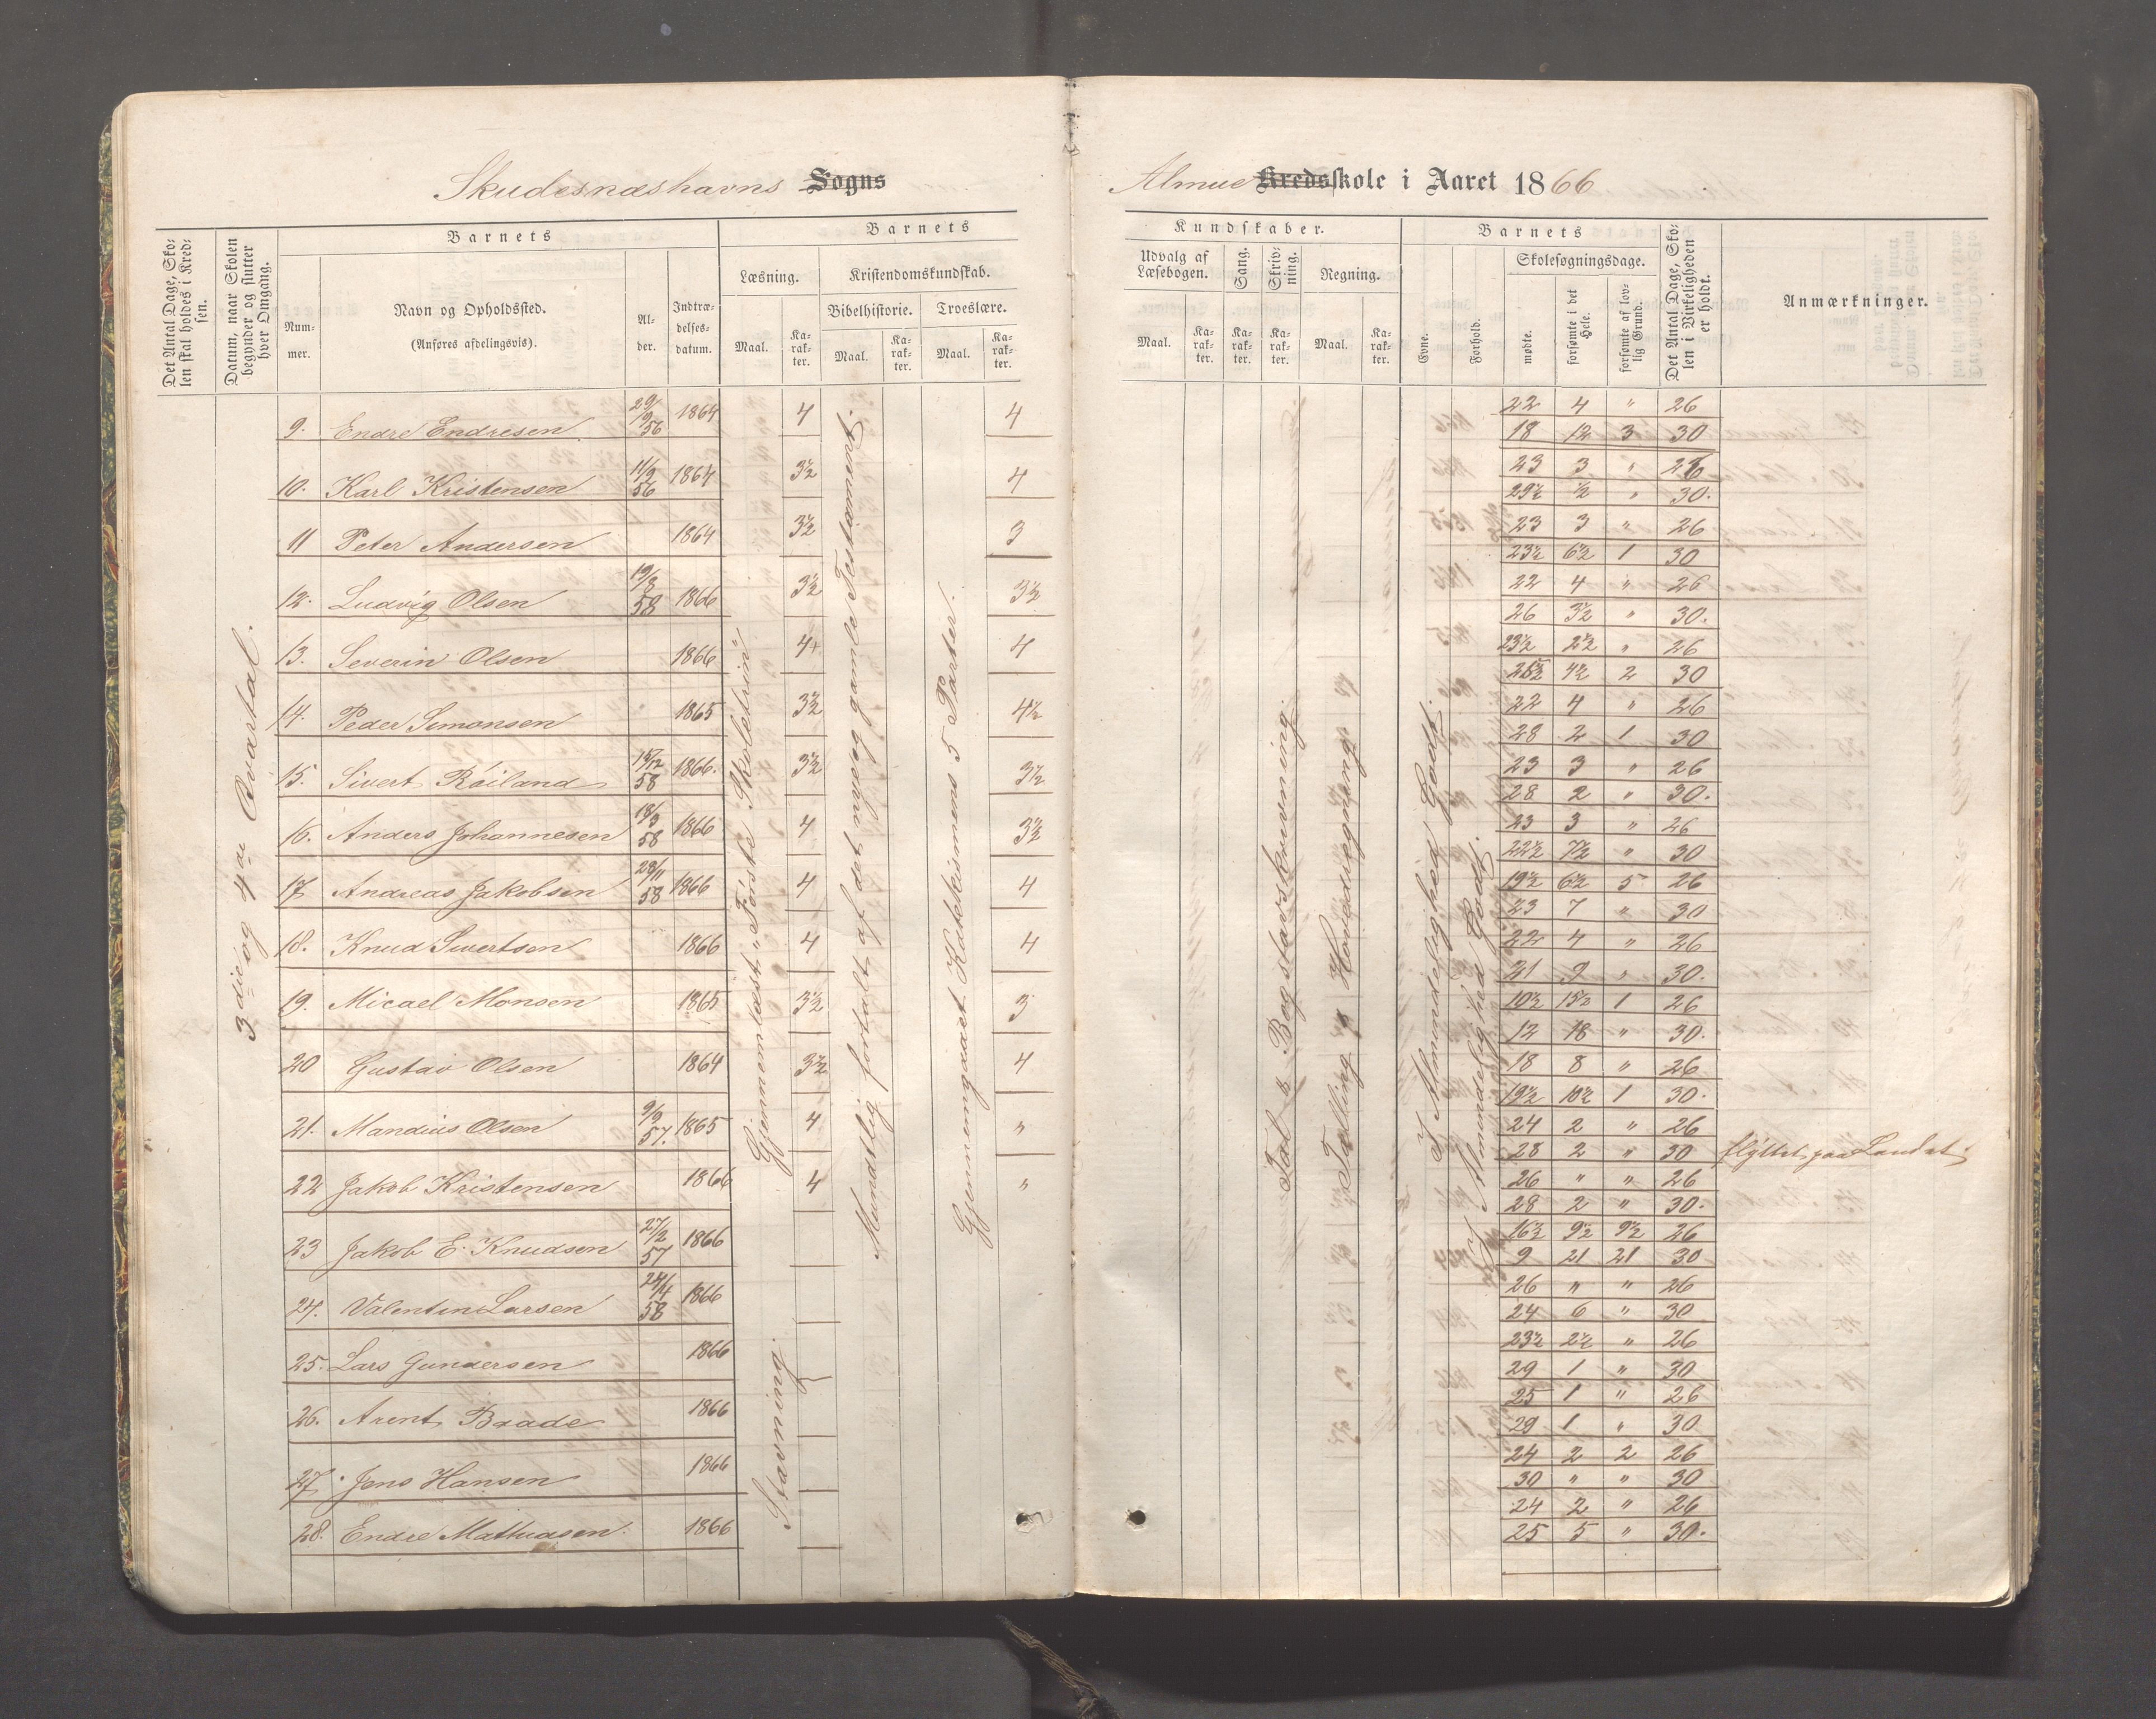 Skudesnæshavns Sogns
Almue Kredsskole i Aaret 1866
Det Antal Dage, Skolen skal holdes i Kredsen.
Datum, naar Skolen begynder og slutter hver Omgang.
Barnets
Nummer.
Navn og Opholdssted.
(Anføres afdelingsvis).
Alder.
Indtrædelsesdatum.
Barnets
Læsning.
Maal.
Karakter.
Kristendomskundskab.
Bibelhistorie.
Maal.
Karakter.
Troeslære.
Maal.
Karakter.
Kundskaber.
Udvalg af Læsebogen.
Maal.
Karakter.
Sang.
Karakter.
Skrivning.
Karakter.
Regning.
Maal.
Karakter.
Barnets
Evne.
Forhold.
Skolesøgningsdage.
mødte.
forsømte i det Hele.
forsømte af lovlig Grund.
Det Antal Dage, Skolen i Virkeligheden er holdt.
Anmærkninger.
3die og 4de Qvartal.
Gjennemlæst "Første Skoletrin"
Stavning.
Mundtlig fortalt af det nye og gamle Testamente.
Gjennemgaaet Katekismens 5 Parter.
Tal & Bogstavskrivning.
Tælling & Hovedregning
I Almindelighed Godt.
I Almindelighed Godt.
9. Endre Endresen 29/9 56 1864 4 4 22 4 " 26
18 12 3 30
10. Karl Kristensen 11/2 56 1864 3½ 4 23 3 " 26
29½ ½ " 30.
11 Peter Andersen 1864 3½ 3 23 3 " 26
23½ 6½ 1 30
12. Ludvig Olsen 19/8 58 1866 3½ 3½ 22 4 " 26
26 3½ " 30.
13. Severin Olsen 1866 4+ 4 23½ 2½ " 26
25½ 4½ 2 30
14. Peder Simonsen 1865 3½ 4½ 22 4 " 26
28 2 1 30
15. Sivert Røiland 15/12 58 1866. 3½ 3½ 23 3 " 26
28 2 " 30.
16. Anders Johannesen 18/9 58 1866 4 3½ 23 3 " 26
22½ 7½ " 30
17 Andreas Jakobsen 28/11 58 1866 4 4 19½ 6½ 5 26
23 7 " 30
18. Knud Sivertsen 1866 4 4 22 4 " 26
21 9 " 30.
19. Micael Monsen 1865 3½ 3 10½ 15½ 1 26
12 18 " 30.
20 Gustav Olsen 1864 3½ 4 18 8 " 26
19½ 10½ 1 30.
21. Mandius Olsen 9/9 57. 1865 4 " 24 2 " 26
28 2 " 30 flyttet paa Landet.
22 Jakob Kristensen 1866 4 " 26 " " 26
28 2 " 30.
23 Jakob E. Knudsen 27/2 57 1866 16½ 9½ 9½ 26
9 21 21 30
24. Valentin Larsen 24/4 58 1866 26 " " 26
24 6 " 30
25. Lars Gundersen 1866 23½ 2½ " 26
29 1 " 30
26. Arent Brade 1866 25 1 " 26
29 1 " 30
27. Jens Hansen 1866 24 2 2 26
30 " " 30
28. Endre Mathiasen. 1866 24 2 " 26
25 5 " 30.